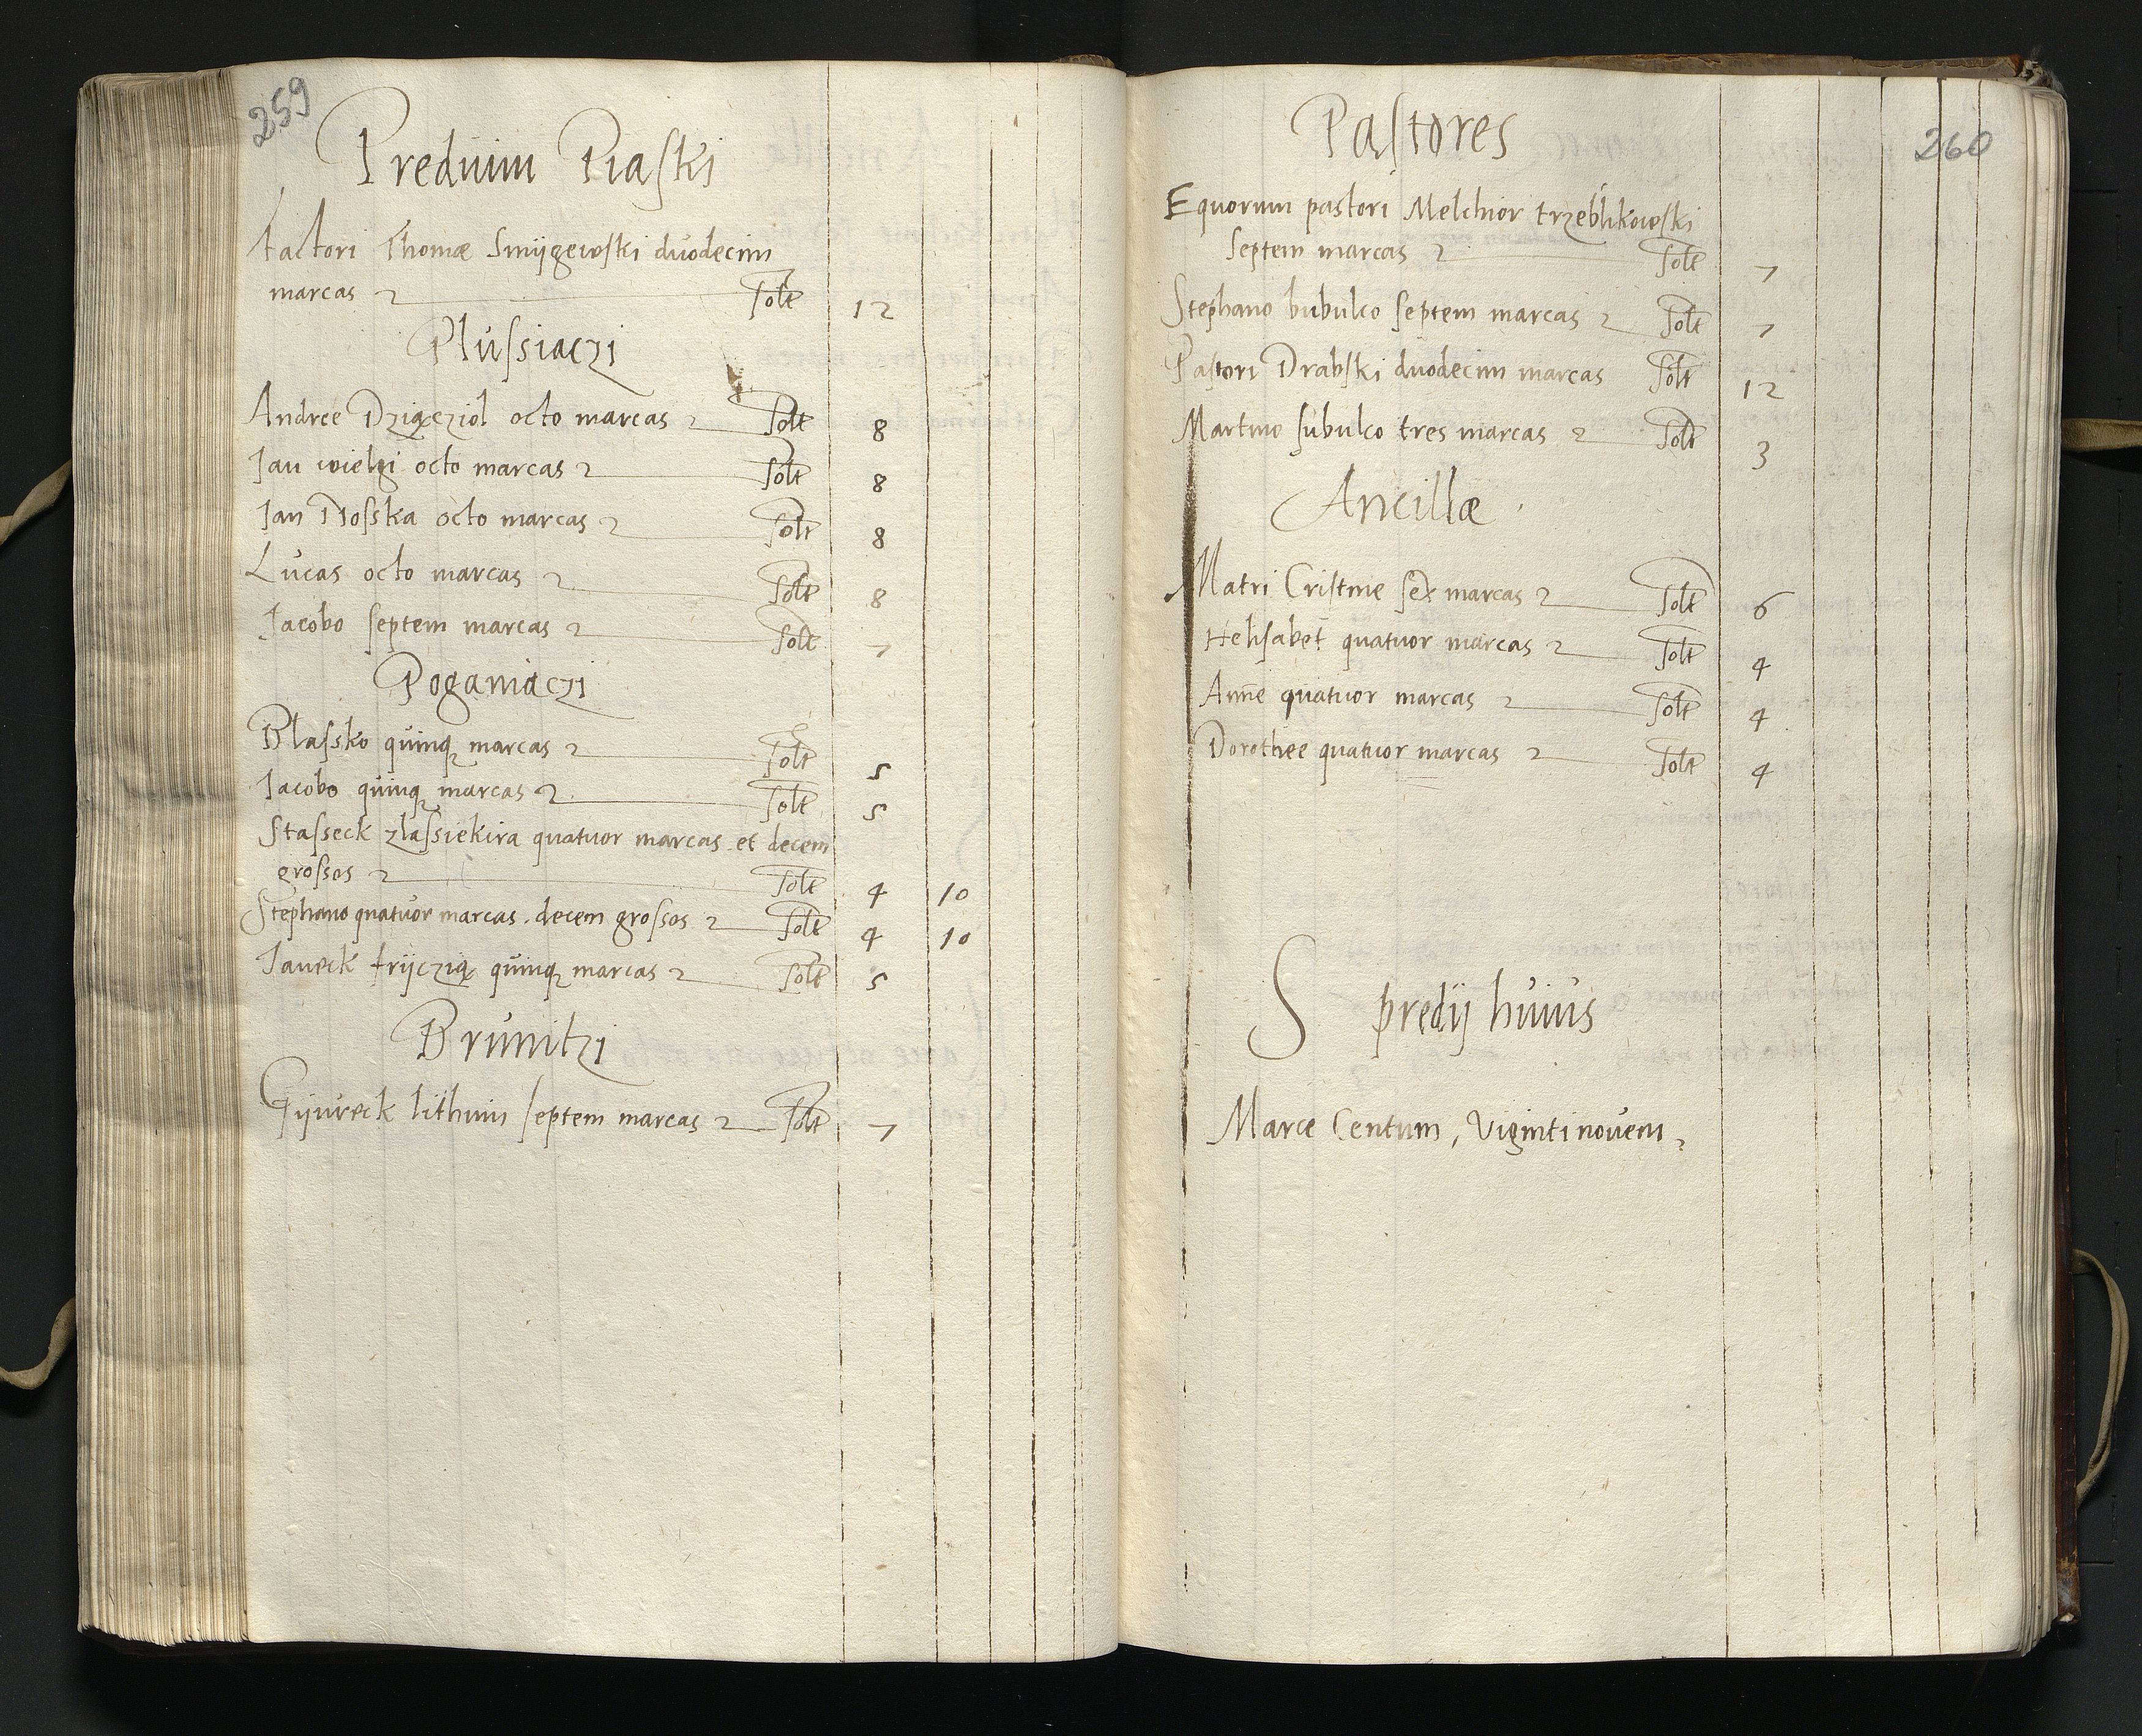 259
Predium Piaski
factori Thomæ Smijgewski duodecim
marcas Solt 12
Plussiaczi
Andree Dzięcziol octo marcas Solt 8
Jan wielgi octo marcas Solt 8
Jan Nosska octo marcas Solt 8
Lucas octo marcas Solt 8
Jacobo septem marcas Solt 7
Poganiaczi
Blassko quinq marcas Solt 5
Jacobo quinq marcas Solt 5
Stasseck zlassiekira quatuor marcas et decem
grossos Solt 4 10
Stephano quatuor marcas decem grossos Solt 4 10
Janeck frijczią quinq marcas Solt 5
Brunitzi
Gijureck lithuin septem marcas Solt 7
260
Pastores
Equorum pastori Melchior trzeblikowski
septem marcas Solt 7
Stephano bubulco septem marcas Solt 7
Pastori Drabski duodecim marcas Solt 12
Martino subulco tres marcas Solt 3
Ancillæ
Matri Cristine sex marcas Solt 6
Helisabet quatuor marcas Solt 4
Anne quatuor marcas Solt 4
Dorothee quatuor marcas Solt 4
S predij huius
Marce Centum, Viginti novem